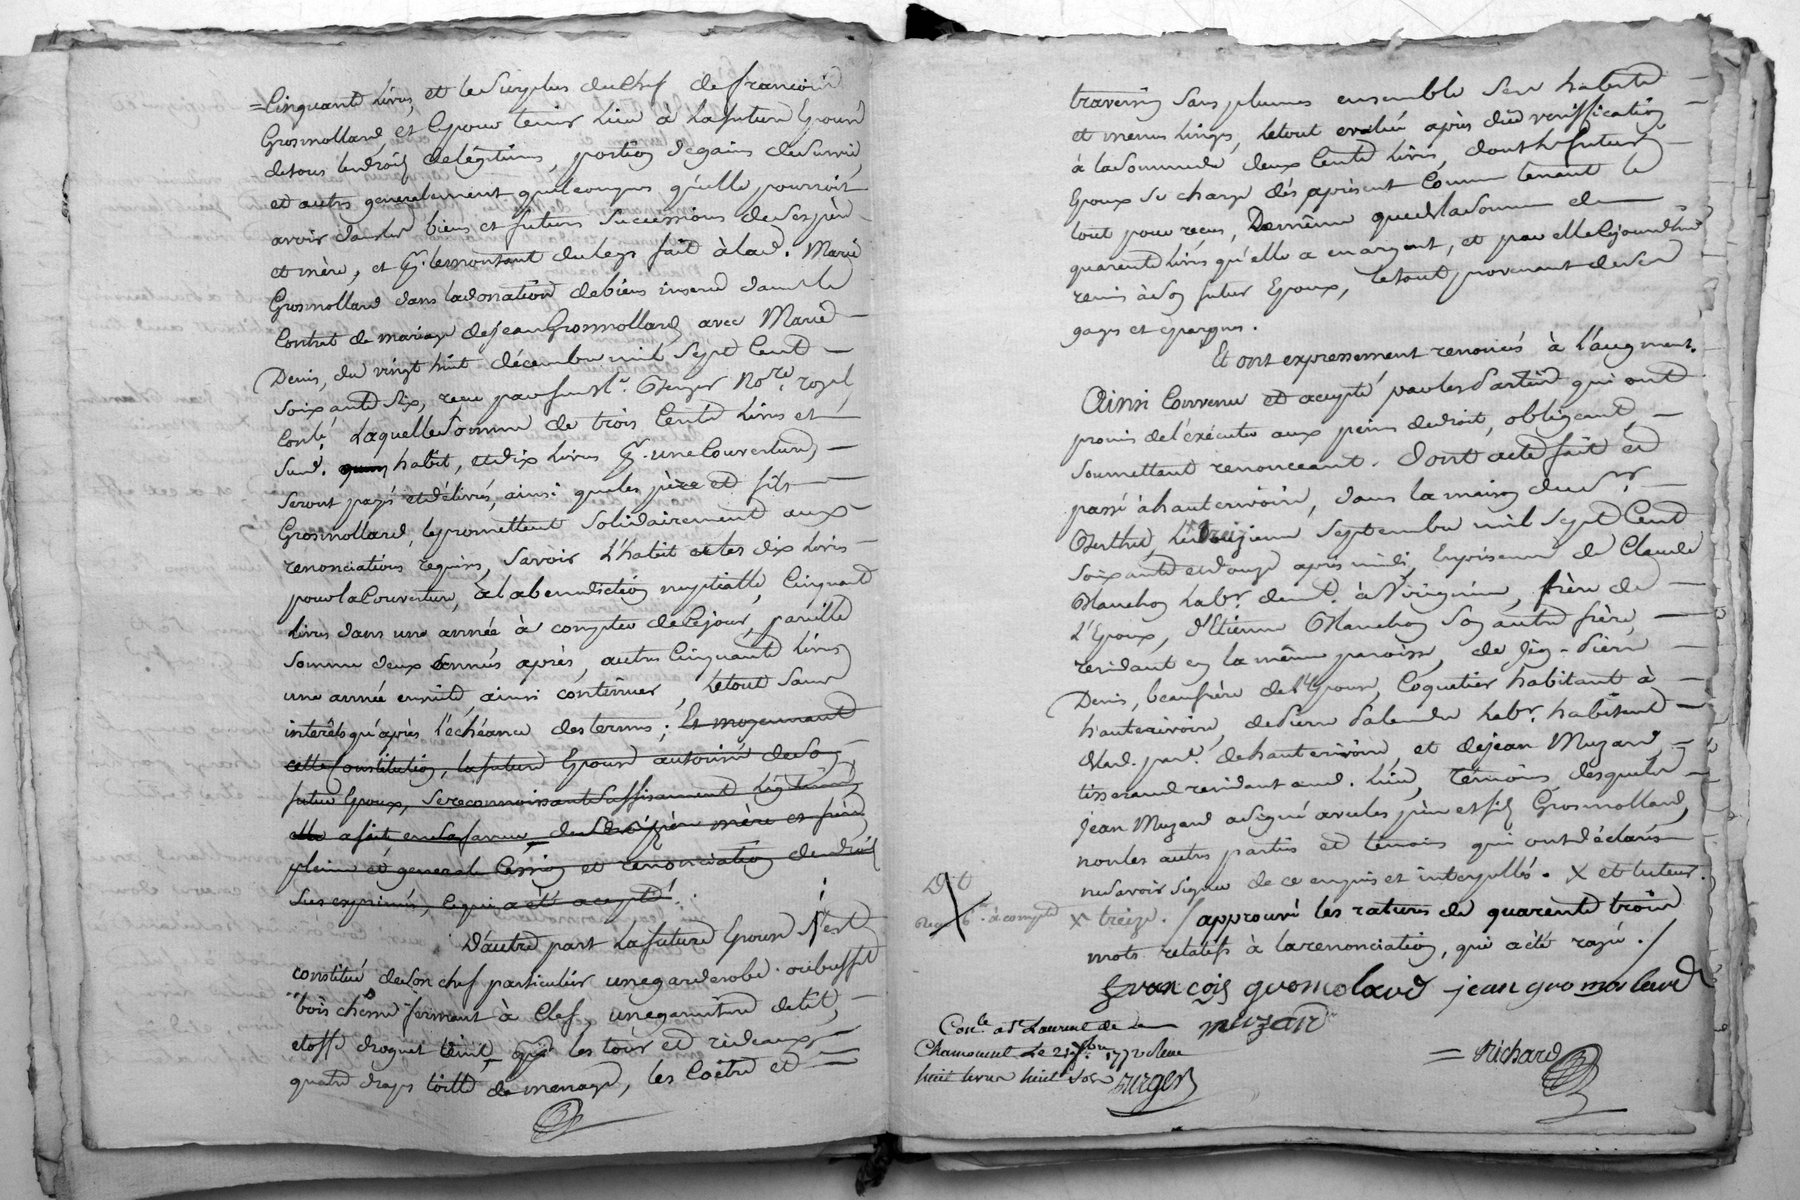 =Cinquante livres, et le surplus du chef de francoise
Grosmolland, et c'pour tenir lieu à la future Epouse
de tous les droits de légitime, portion de gains de survie,
et autres generalement quelconques qu'elle pourroit
avoir dans les biens et futures successions de ses père
et mère, et pr. le montant du legs fait à lad. Marie
Grosmolland dans la donation de biens inseree dans le
Contrat de mariage de jean Grosmolland avec Marie
Denis, du vingt huit décembre mil sept Cent
Soixante Six, recu par feu Me. Berger Nore. royal,
laquelle Somme de trois Cents livres et
Susd. habit, et dix livres pr. une Couverture,
Seront payés et délivrés, ainsi que les père et fils
Grosmolland, le promettent Solidairement aux
renonciations requises, Savoir l'habit et les dix livres
pour la Couverture, à la benediction nuptialle, Cinquante
livres dans une année à compter de Cejour, pareille
Somme deux années après, autres Cinquante livres
une année ensuite, ainsi continuer, le tout Sans
interêts qu'après l'échéance des termes; Et moyennant
cette Constitution, la future Epouse autorisée de Son
futur Epoux, Se reconnoissant Suffisament légitimée,
elle a fait en la faveur, de Sesd. père mère et frère
pleine et generale Cession et renonciation de droits
Sus exprimés, ce qui a été accepté.
D'autre part la future Epouse S'est
constitué de Son chef particulier une garderobe ou buffet
bois chêne fermant à Clef, une garniture de lit,
etoffe droguet teint, les tour et rideaux,
quatre draps toille de menage, les Coëtre et
traversin Sans plumes ensemble Ses habits
et menus linges, le tout evalué après due veriffication
à la Somme de deux Cents livres, dont le futur
Epoux Se charge dès apresent Comme tenant le
tout pour recu, De même que de la Somme de
quarente livres qu'elle a en argent, et par elle Cejourd'hui
remis à Son futur Epoux, le tout provenant de Ses
gages et epargnes.
Et ont expressement renoncés à l'augment.
Ainsi Convenu et accepté par les Parties qui ont
promis de l'exécuter aux peines de droit, obligeant,
Soumettant renonceant. Dont acte fait et
passé à hauterivoire, dans la maison du Sr.
Berthet, le treizieme Septembre mil Sept Cent
Soixante et douze après midi, En présence de Claude
Blanchon labr. demt. à Virigneux, frère de
L'Epoux, d'Etienne Blanchon Son autre frère,
residant en la même paroisse, de Jean-Pierre
Denis, beaufrère de l'Epouse, Coquetier habitant à
hauterivoire, de Pierre Palandre labr. habitant
lad. parse. de hauterivoire, et de jean Muzard
tisserand residant aud. lieu, Témoins, desquels
jean Muzard a signé avec les père et fils Grosmolland,
non les autres parties et temoins qui ont déclarés
ne Savoir Signer de ce enquis et interpellés. X et tuteur.
X treize. / approuvé les ratures de quarente trois
mots relatifs à la renonciation, qui a été rayée./
Dt
Recu 6tt. à compte
francois gromolard jean gromolard
muzard
Richard
Conle. a St Laurent de
Chamousset le 21 7bre 1772 Recu
huit livres huit Sols
Burger